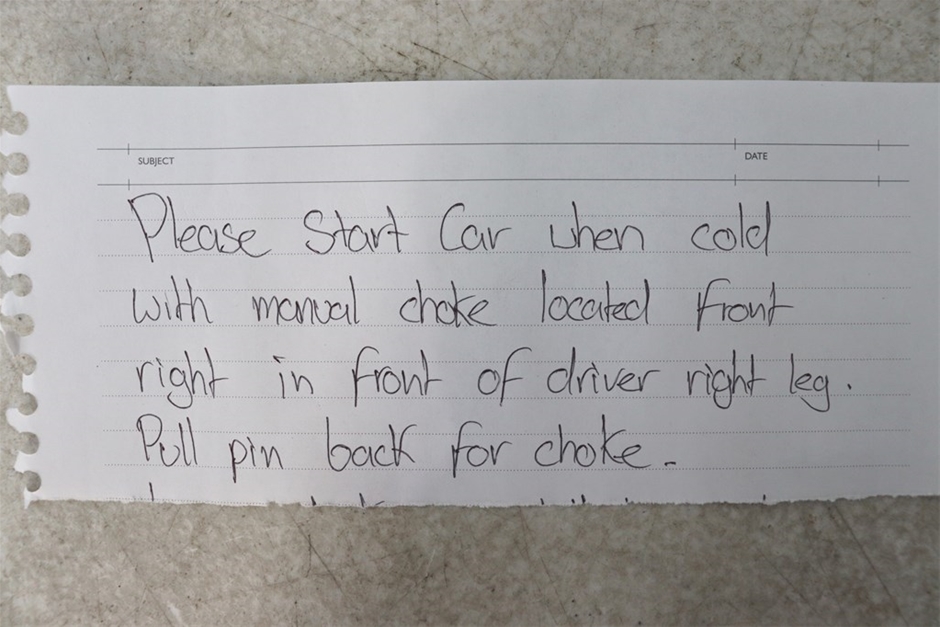 SUBJECT DATE
Please Start Car when cold
with manual choke located front
right in front of driver right leg.
Pull pin back for choke.